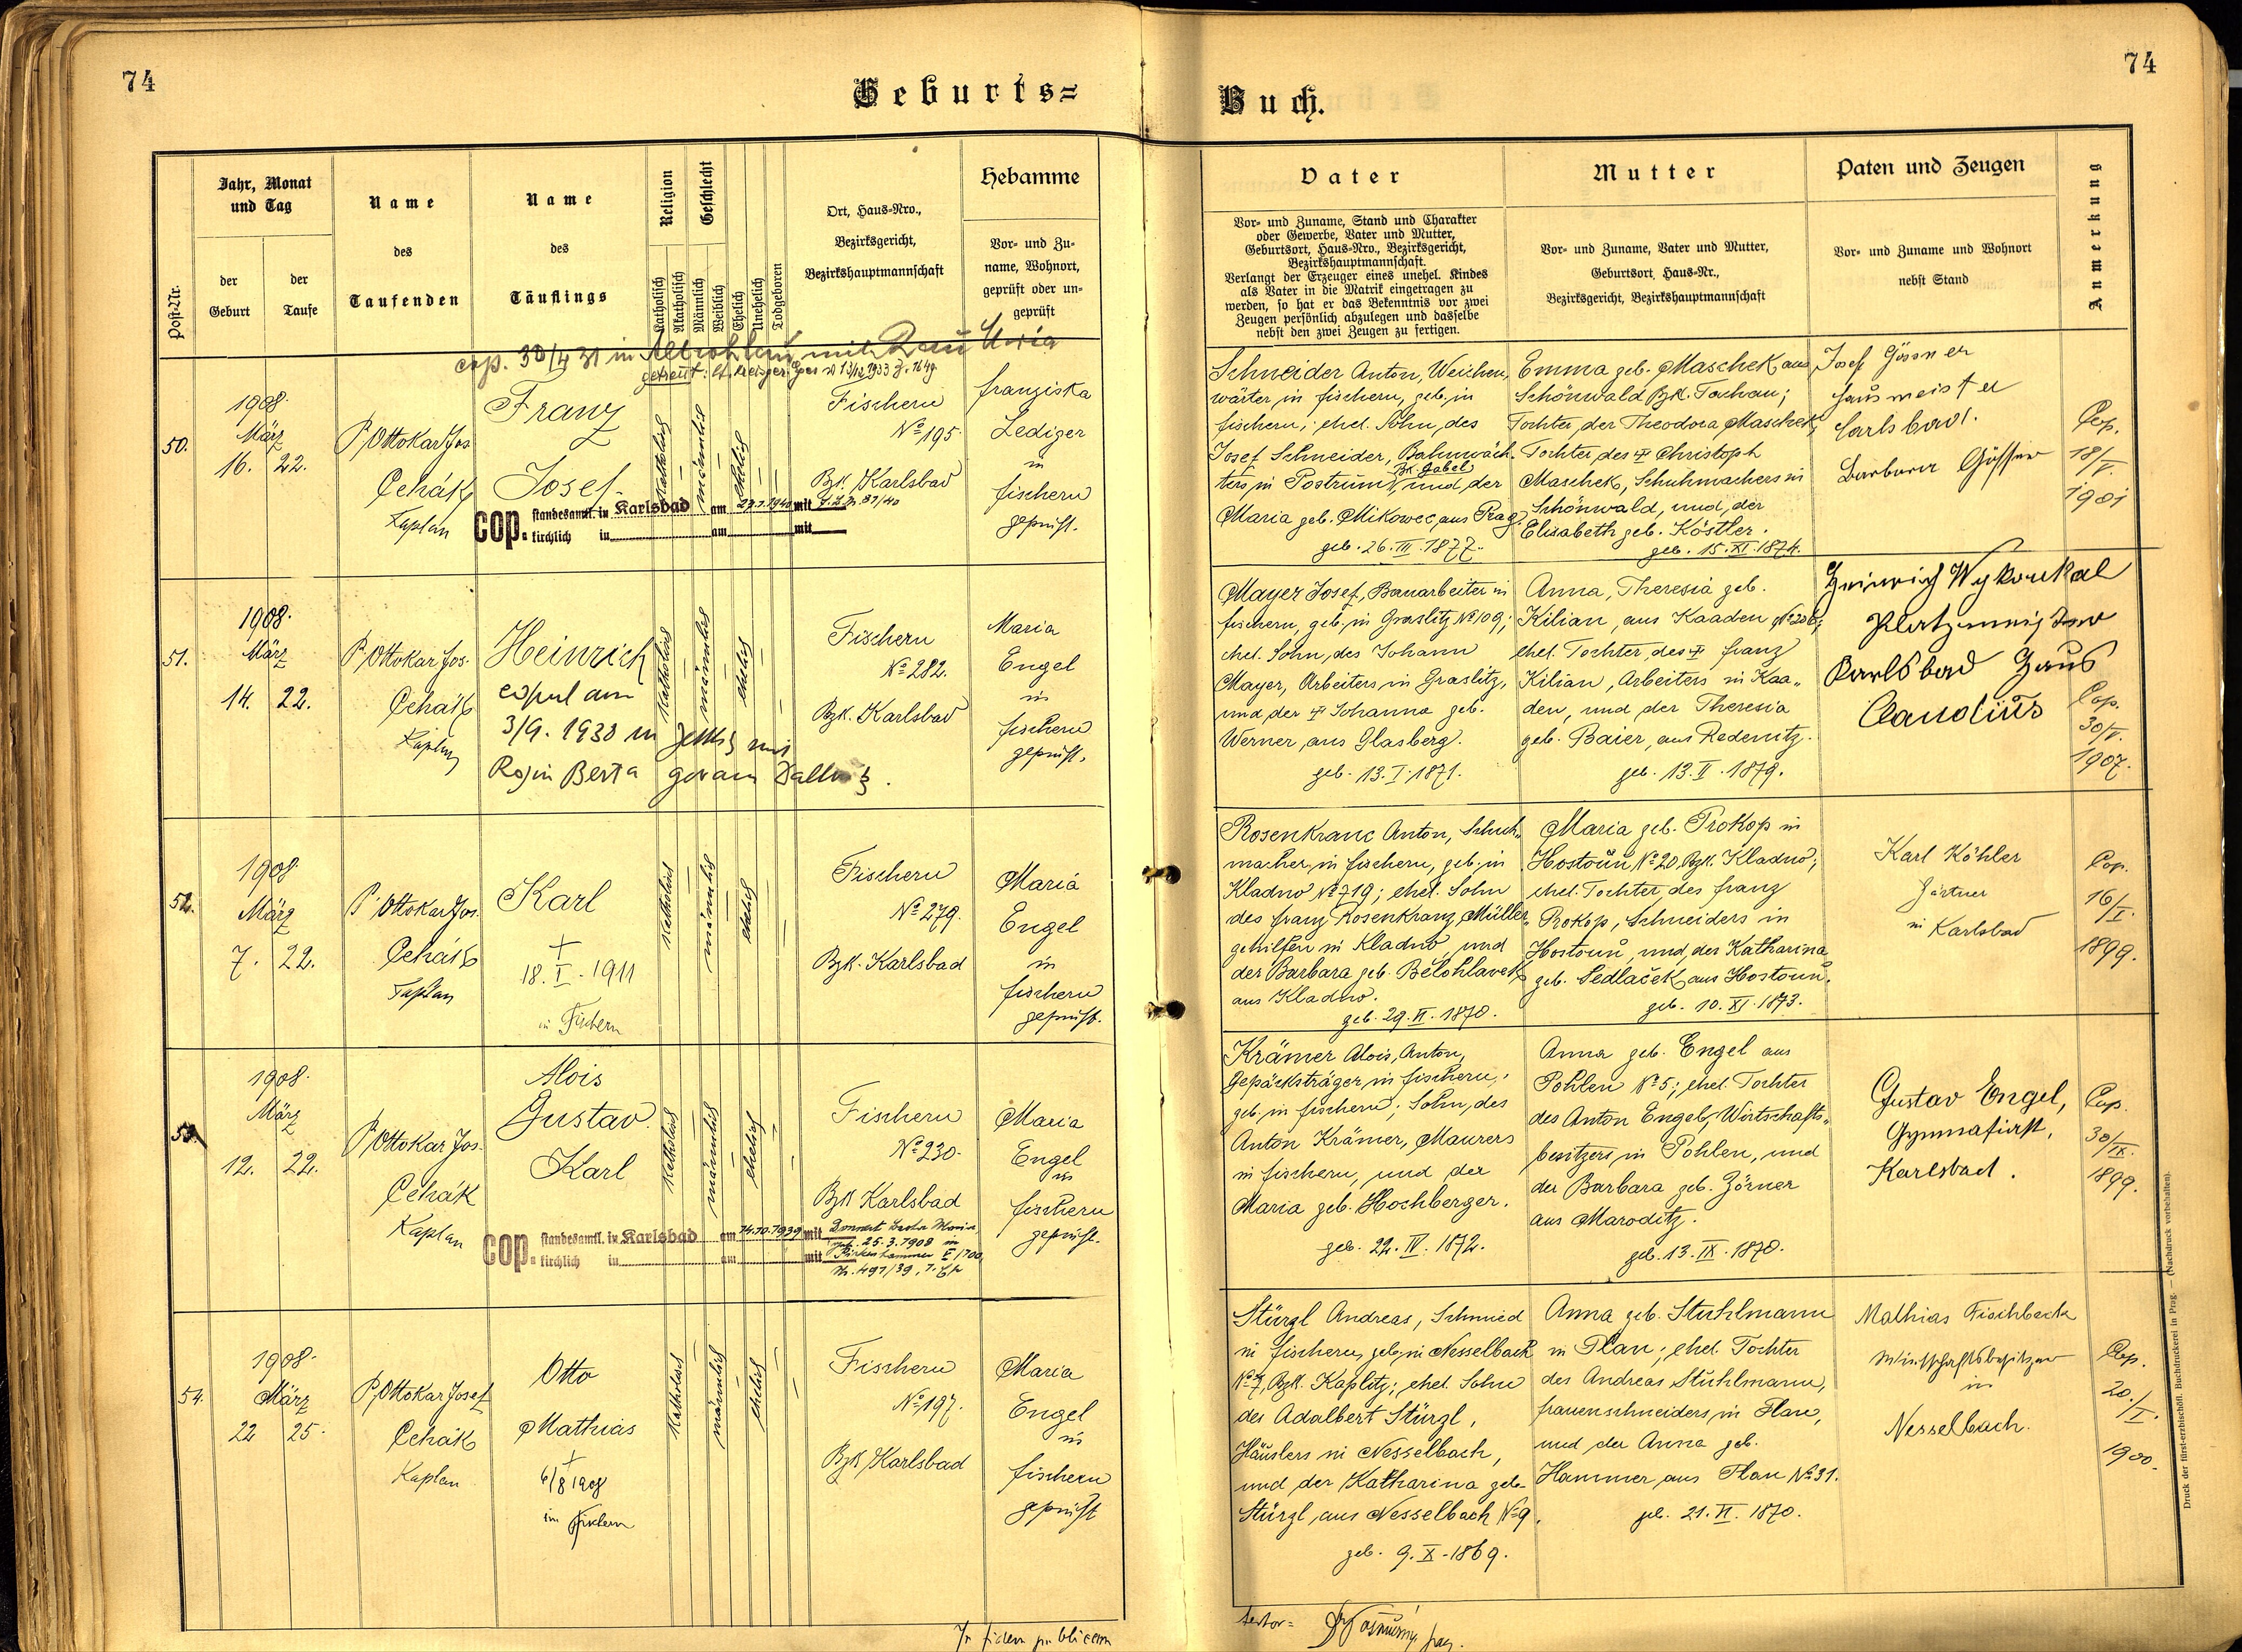 74
Geburts=
Buch.
74
Post-Nr.
Jahr, Monat
und Tag
der
Geburt
der
Taufe
Name
des
Taufenden
Name
des
Täuflings
Religion
Katholisch
Akatholisch
Geschlecht
Männlich
Weiblich
Ehelich
Unehelich
Todgeboren
Ort, Haus-Nro.,
Bezirksgericht,
Bezirkshauptmannschaft
Hebamme
Vor- und Zu-
name, Wohnort,
geprüft oder un-
geprüft
Vater
Vor- und Zuname, Stand und Charakter
oder Gewerbe, Vater und Mutter,
Geburtsort, Haus-Nro., Bezirksgericht,
Bezirkshauptmannschaft.
Verlangt der Erzeuger eines unehel. Kindes
als Vater in die Matrik eingetragen zu
werden, so hat er das Bekenntnis vor zwei
Zeugen persönlich abzulegen und dasselbe
nebst den zwei Zeugen zu fertigen.
Mutter
Vor- und Zuname, Vater und Mutter,
Geburtsort, Haus-Nr.,
Bezirksgericht, Bezirkshauptmannschaft
Paten und Zeugen
Vor- und Zuname und Wohnort
nebst Stand
Anmerkung
cop. 30/4 31 in Altrohlau mit
50.
1908.
März
16. 22.
P. Ottokar Jos
Čehák
Kaplan
Franz
Josef
katholisch
männlich
ehelich
Fischern
No 195.
Bzk. Karlsbad
Franziska
Lediger
in
Fischern
geprüft.
cop. standesamtl. in Karlsbad am 27.1.1940 mit
kirchlich in am mit
Schneider Anton, Weichen-
wärter in Fischern, geb. in
Fischern; ehel. Sohn, des
Josef Schneider, Bahnwäch-
ters in Postrum, Bzk. Gabel und der
Maria geb. Mikowec, aus Prag.
geb. 26.III.1877.
Emma geb. Maschek aus
Schönwald Bzk. Tachau;
Tochter, der Theodora Maschek,
Tochter des † Christoph
Maschek, Schuhmachers in
Schönwald, und, der
Elisabeth geb. Köstler.
geb. 15.XI.1874.
Josef Gössner
Hausmeister
Carlsbad.
Barbara Gössner
Cop.
18/V.
1901
51.
1908.
März
14. 22.
P. Ottokar Jos.
Čehák
Kaplan
Heinrich
copul am
3/9. 1938 in mit
Rosin Berta
katholisch
männlich
ehelich
Fischern
No 282.
Bzk. Karlsbad
Maria
Engel
in
Fischern
geprüft.
Mayer Josef, Bauarbeiter in
Fischern, geb. in Graslitz No 109;
ehel. Sohn, des Johann
Mayer, Arbeiters in Graslitz,
und der † Johanna geb.
Werner, aus Glasberg.
geb. 13.I.1871.
Anna, Theresia geb.
Kilian, aus Kaaden No 206;
ehel. Tochter, des † Franz
Kilian, Arbeiters in Kaa-
den, und der Theresia
geb. Baier, aus Redenitz.
geb. 13.II.1879.
Heinrich Wykoukal
Platzmeister
Karlsbad Haus
Claudius
Cop.
30/V.
1907.
52.
1908
März
7. 22.
P. Ottokar Jos.
Čehák
Kaplan
Karl
†
18.I.1911
in Fischern
katholisch
männlich
ehelich
Fischern
No 279.
Bzk. Karlsbad
Maria
Engel
in
Fischern
geprüft.
Rosenkranc Anton, Schuh-
macher in Fischern, geb. in
Kladno No 719; ehel. Sohn
des Franz Rosenkranz, Müller-
gehilfen in Kladno, und
der Barbara geb. Bělohlavek
aus Kladno.
geb. 29.VI.1870.
Maria geb. Prokop in
Hostouň No 20, Bzk. Kladno;
ehel. Tochter, des Franz
Prokop, Schneiders in
Hostouň, und, der Katharina
geb. Sedlaček aus Hostouň.
geb. 10.XI.1873.
Karl Köhler
Gärtner
in Karlsbad
Cop.
16/I.
1899.
53.
1908.
März
12. 22.
P. Ottokar Jos.
Čehák
Kaplan
Alois
Gustav
Karl
katholisch
männlich
ehelich
Fischern
No 230.
Bzk Karlsbad
Maria
Engel
in
Fischern
geprüft.
cop. standesamtl. in Karlsbad am 14.10.1939 mit
geb. 25.3.1908 in
kirchlich in am mit
Nr. 491/39
Krämer Alois, Anton,
Gepäcksträger in Fischern,
geb. in Fischern; Sohn, des
Anton Krämer, Maurers
in Fischern, und der
Maria geb. Hochberger.
geb. 22.IV.1872.
Anna geb. Engel aus
Pohlen No 5; ehel. Tochter
des Anton Engel, Wirtschafts-
besitzers in Pohlen, und
der Barbara geb. Zörner
aus Maroditz.
geb. 13.IX.1870.
Gustav Engel,
Gymnasiast,
Karlsbad.
Cop.
30/IX.
1899.
54.
1908.
März
22 25.
P. Ottokar Josef
Čehák
Kaplan
Otto
Matthias
†
6/8 1908
in Fischern
katholisch
männlich
ehelich
Fischern
No 197.
Bzk Karlsbad
Maria
Engel
in
Fischern
geprüft
Stürzl Andreas, Schmied
in Fischern, geb. in Nesselbach
No 7, Bzk. Kaplitz; ehel. Sohn
des Adalbert Stürzl,
Häuslers in Nesselbach,
und der Katharina geb.
Stürzl, aus Nesselbach No 9.
geb. 9.X.1869.
Anna geb. Stuhlmann
in Plan; ehel. Tochter
des Andreas Stuhlmann,
Frauenschneiders in Plan,
und der Anna geb.
Hammer aus Plan No 31.
geb. 21.VI.1870.
Mathias Fischback
Wirtschaftsbesitzer
in
Nesselbach.
Cop.
20./I.
1900.
In fidem publicam
Druck der fürst-erzbischöfl. Buchdruckerei in Prag. — (Nachdruck vorbehalten).